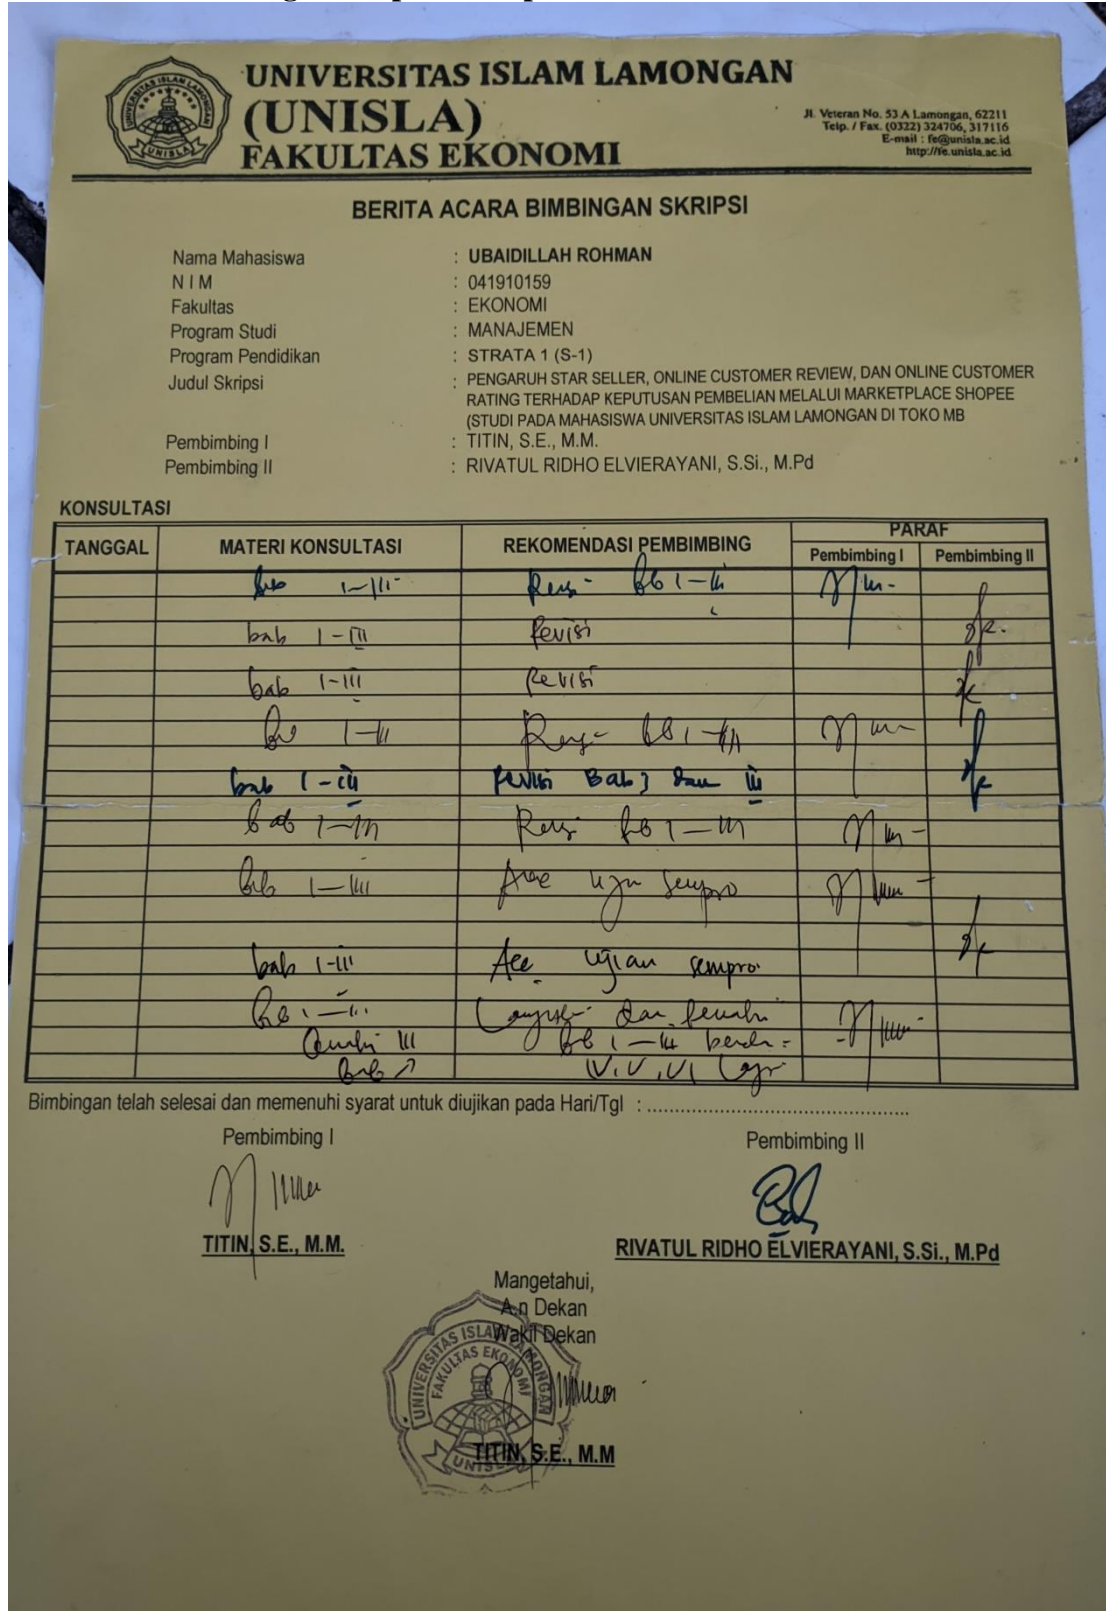 UNIVERSITAS ISLAM LAMONGAN
(UNISLA)
FAKULTAS EKONOMI
Jl. Veteran No. 53 A Lamongan, 62211
Telp. / Fax. (0322) 324706, 317116
E-mail : fe@unisla.ac.id
http://fe.unisla.ac.id
BERITA ACARA BIMBINGAN SKRIPSI
Nama Mahasiswa : UBAIDILLAH ROHMAN
N I M : 041910159
Fakultas : EKONOMI
Program Studi : MANAJEMEN
Program Pendidikan : STRATA 1 (S-1)
Judul Skripsi : PENGARUH STAR SELLER, ONLINE CUSTOMER REVIEW, DAN ONLINE CUSTOMER
RATING TERHADAP KEPUTUSAN PEMBELIAN MELALUI MARKETPLACE SHOPEE
(STUDI PADA MAHASISWA UNIVERSITAS ISLAM LAMONGAN DI TOKO MB
Pembimbing I : TITIN, S.E., M.M.
Pembimbing II : RIVATUL RIDHO ELVIERAYANI, S.Si., M.Pd
KONSULTASI
TANGGAL MATERI KONSULTASI REKOMENDASI PEMBIMBING PARAF
Pembimbing I Pembimbing II
bab I-III Revisi
bab I-III Revisi
bab I-III Revisi Bab dan III
bab I-III
bab I-III Acc ujian sempro
Bimbingan telah selesai dan memenuhi syarat untuk diujikan pada Hari/Tgl : ..........
Pembimbing I Pembimbing II
TITIN, S.E., M.M. RIVATUL RIDHO ELVIERAYANI, S.Si., M.Pd
Mangetahui,
A.n Dekan
Wakil Dekan
UNIVERSITAS ISLAM LAMONGAN
FAKULTAS EKONOMI
UNISLA
TITIN, S.E., M.M